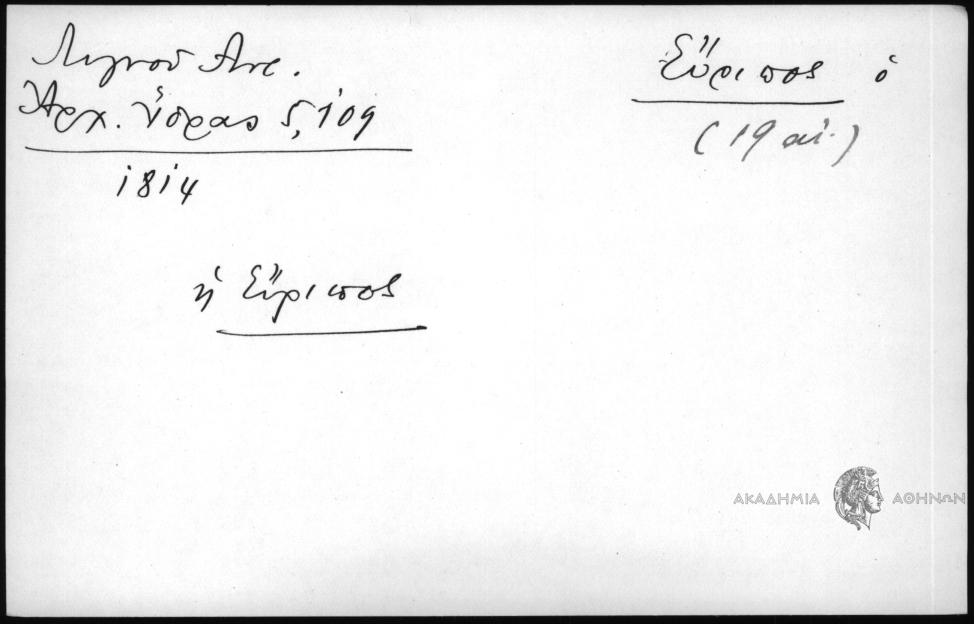 Λιγνοῦ Ἀντ.
Ἀρχ. Ὕδρας 5, 109
1814
Εὔριπος ὁ
(19 αἰ.)
ἡ Εὔριπος
ΑΚΑΔΗΜΙΑ ΑΘΗΝΩΝ